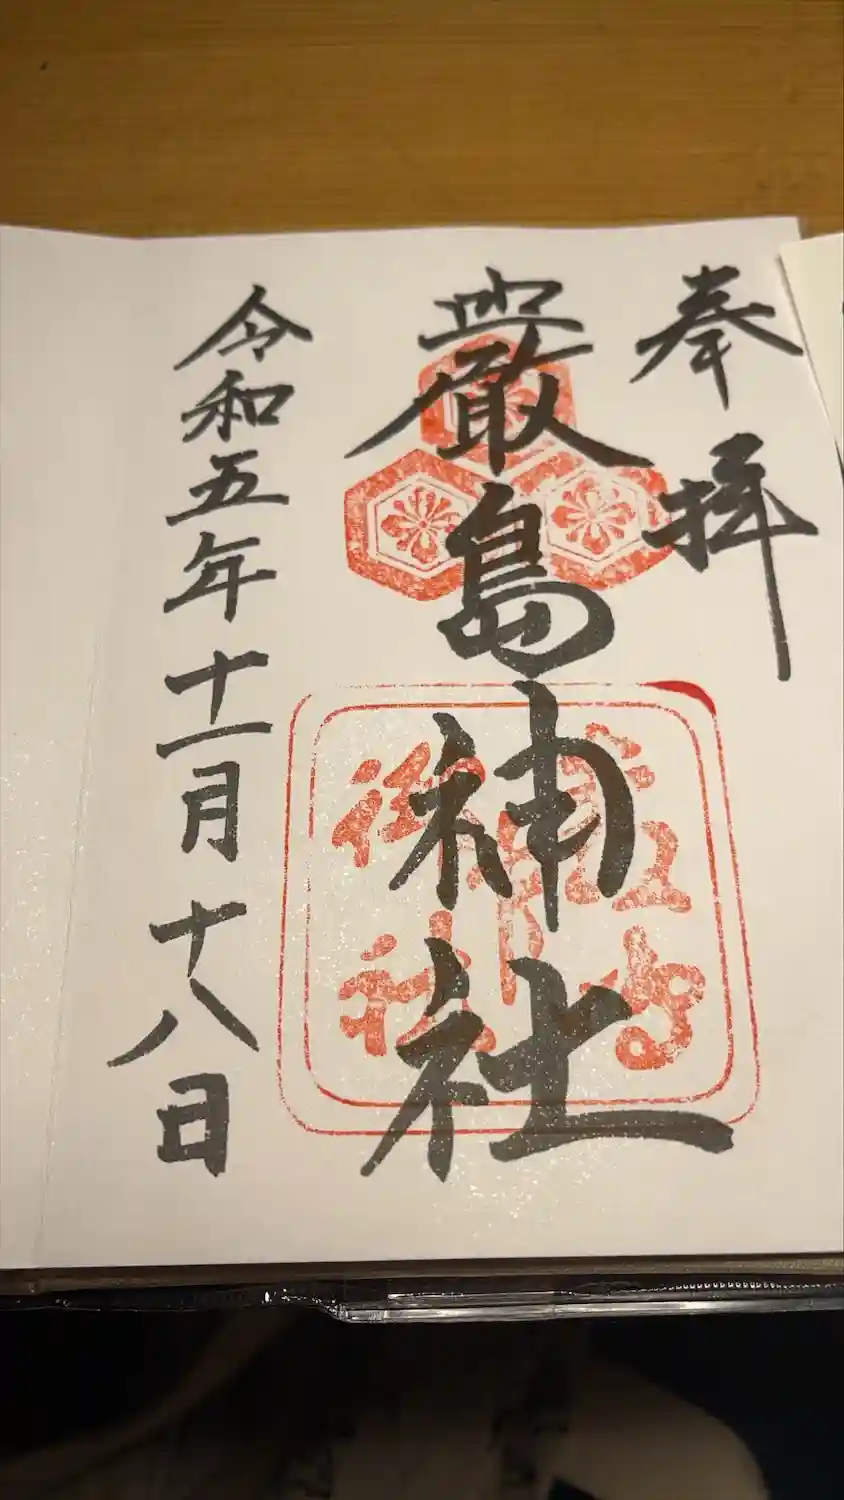 奉拝
嚴島神社
令和五年十一月十八日